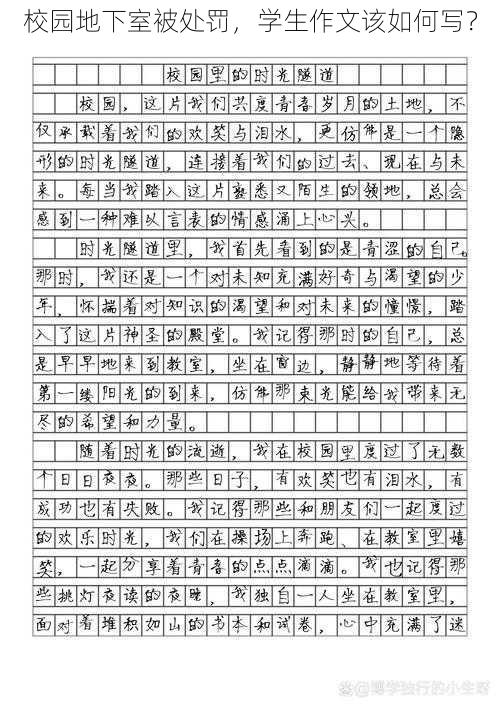 校园地下室被处罚，学生作文该如何写？
校园里的时光隧道
校园，这片我们共度青春岁月的土地，不
仅承载着我们的欢笑与泪水，更仿佛是一个隐
形的时光隧道，连接着我们的过去、现在与未
来。每当我踏入这片熟悉又陌生的领地，总会
感到一种难以言表的情感涌上心头。
时光隧道里，我首先看到的是青涩的自己。
那时，我还是一个对未知充满好奇与渴望的少
年，怀揣着对知识的渴望和对未来的憧憬，踏
入了这片神圣的殿堂。我记得那时的自己，总
是早早地来到教室，坐在窗边，静静地等待着
第一缕阳光的到来，仿佛那束光能给我带来无
尽的希望和力量。
随着时光的流逝，我在校园里度过了无数
个日日夜夜。那些日子，有欢笑也有泪水，有
成功也有失败。我记得那些和朋友们一起度过
的欢乐时光，我们在操场上奔跑、在教室里嬉
笑，一起分享着青春的点点滴滴。我也记得那
些挑灯夜读的夜晚，我独自一人坐在教室里，
面对着堆积如山的书本和试卷，心中充满了迷
@博学独行的小生呀